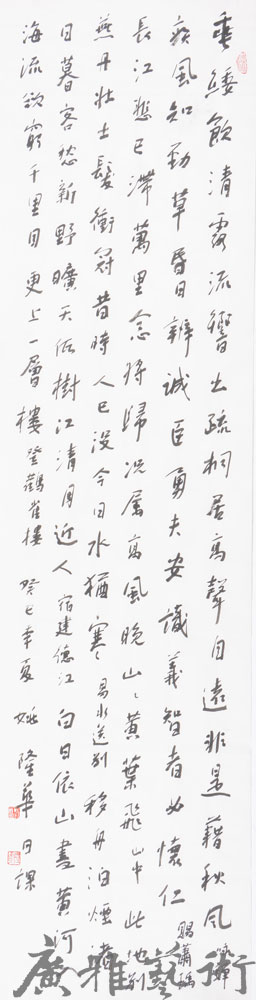 垂緌飲清露流響出疏桐居高聲自遠非是藉秋風咏蟬
疾風知勁草昏日辨誠臣勇夫安識義智者必懷仁賜蕭瑀
長江悲已滯萬里念將歸况屬高風晚山々黃葉飛山中此地別
燕丹壯士髮衝冠昔時人已没今日水猶寒々易水送別移舟泊煙渚
日暮客愁新野曠天低樹江清月近人宿建德江白日依山盡黃河
海流欲窮千里目更上一層樓登鸛雀樓癸巳年夏姚隆華日課
廣雅藝術